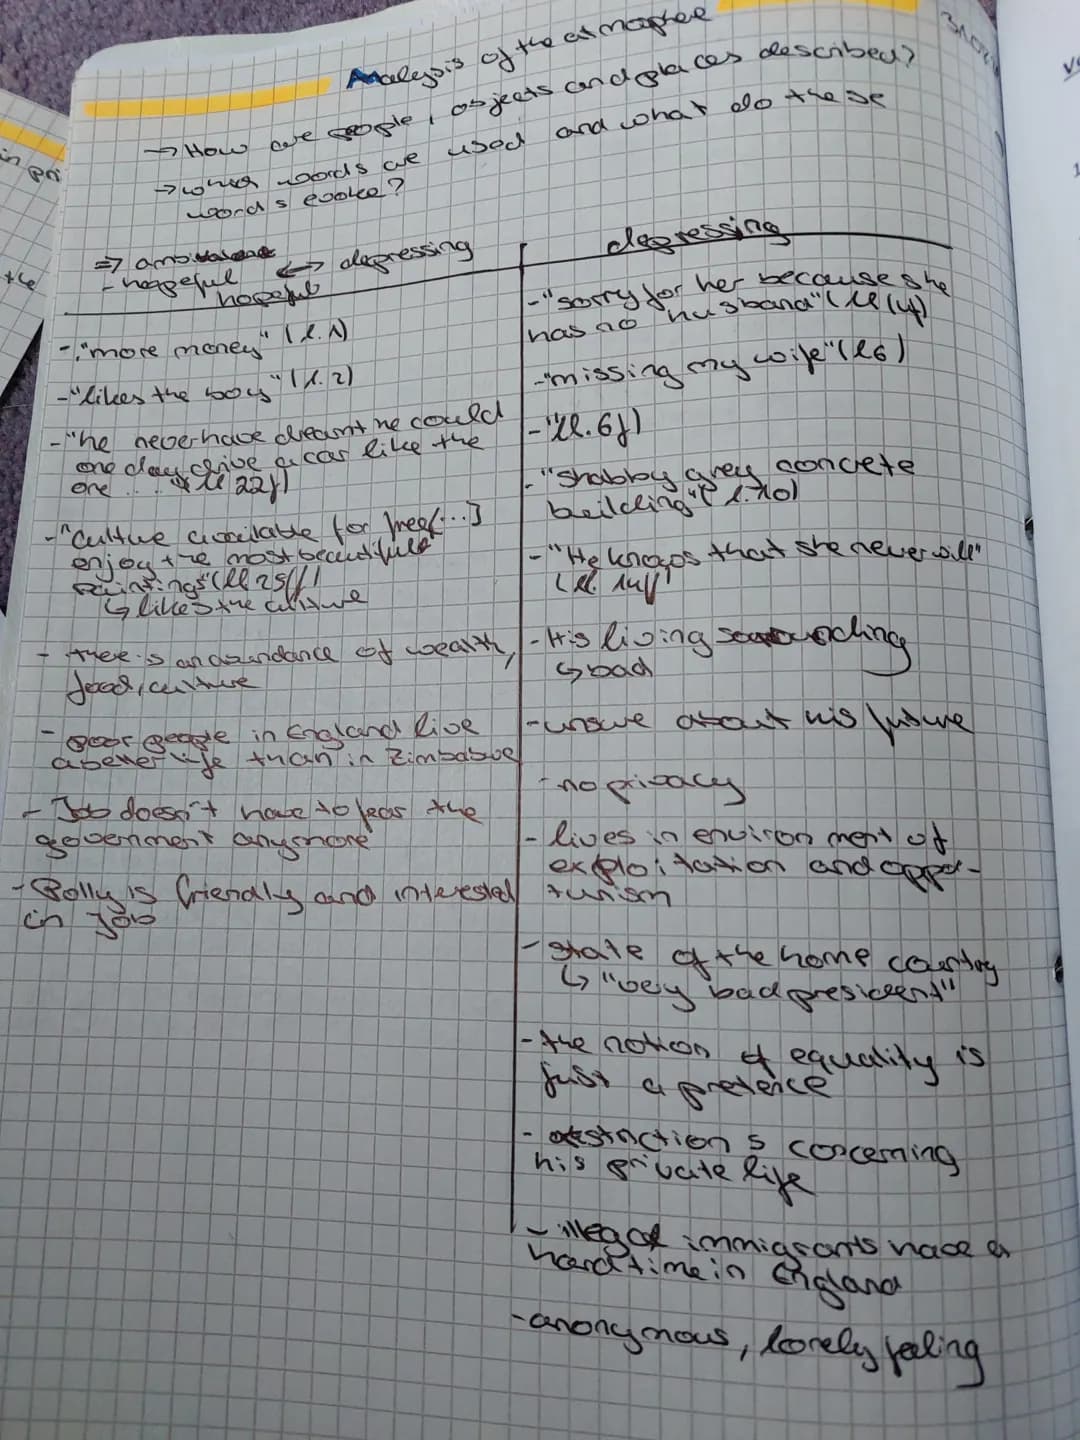 Analysis of the atmosphere
→ How are people, objects and places described?
→ which words are used and what do these
words evoke?
⇒ ambivalent
- hopeful ←→ depressing
hopeful
- "more money" (l.1)
- "likes the boy" (l.2)
- "he never have dreamt he could
one day drive a car like the
one ... " (ll 22f)
- "culture available for free[...]
enjoy the most beautiful
paintings" (ll 25ff)
↳ likes the culture
- there is an abundance of wealth,
food, culture
- poor people in England live
a better life than in Zimbabwe
- Job doesn't have to fear the
government anymore
- Polly is friendly and interested
in Job
depressing
- "sorry for her because she
has no husband" (ll (4f)
- "missing my wife" (l6)
- "ll. 6f)
- "shabby grey concrete
building" ( l. 10)
- "He knows that she never will"
(ll. 14f)
- His living sourrounding
↳ bad
- unsure about his future
- no privacy
- lives in environment of
exploitation and oppor-
tunism
- state of the home country
↳ "very bad president"
- the notion of equality is
just a pretence
- restrictions concerning
his private life
- illegal immigrants have a
hard time in England
- anonymous, lonely feeling
in pri